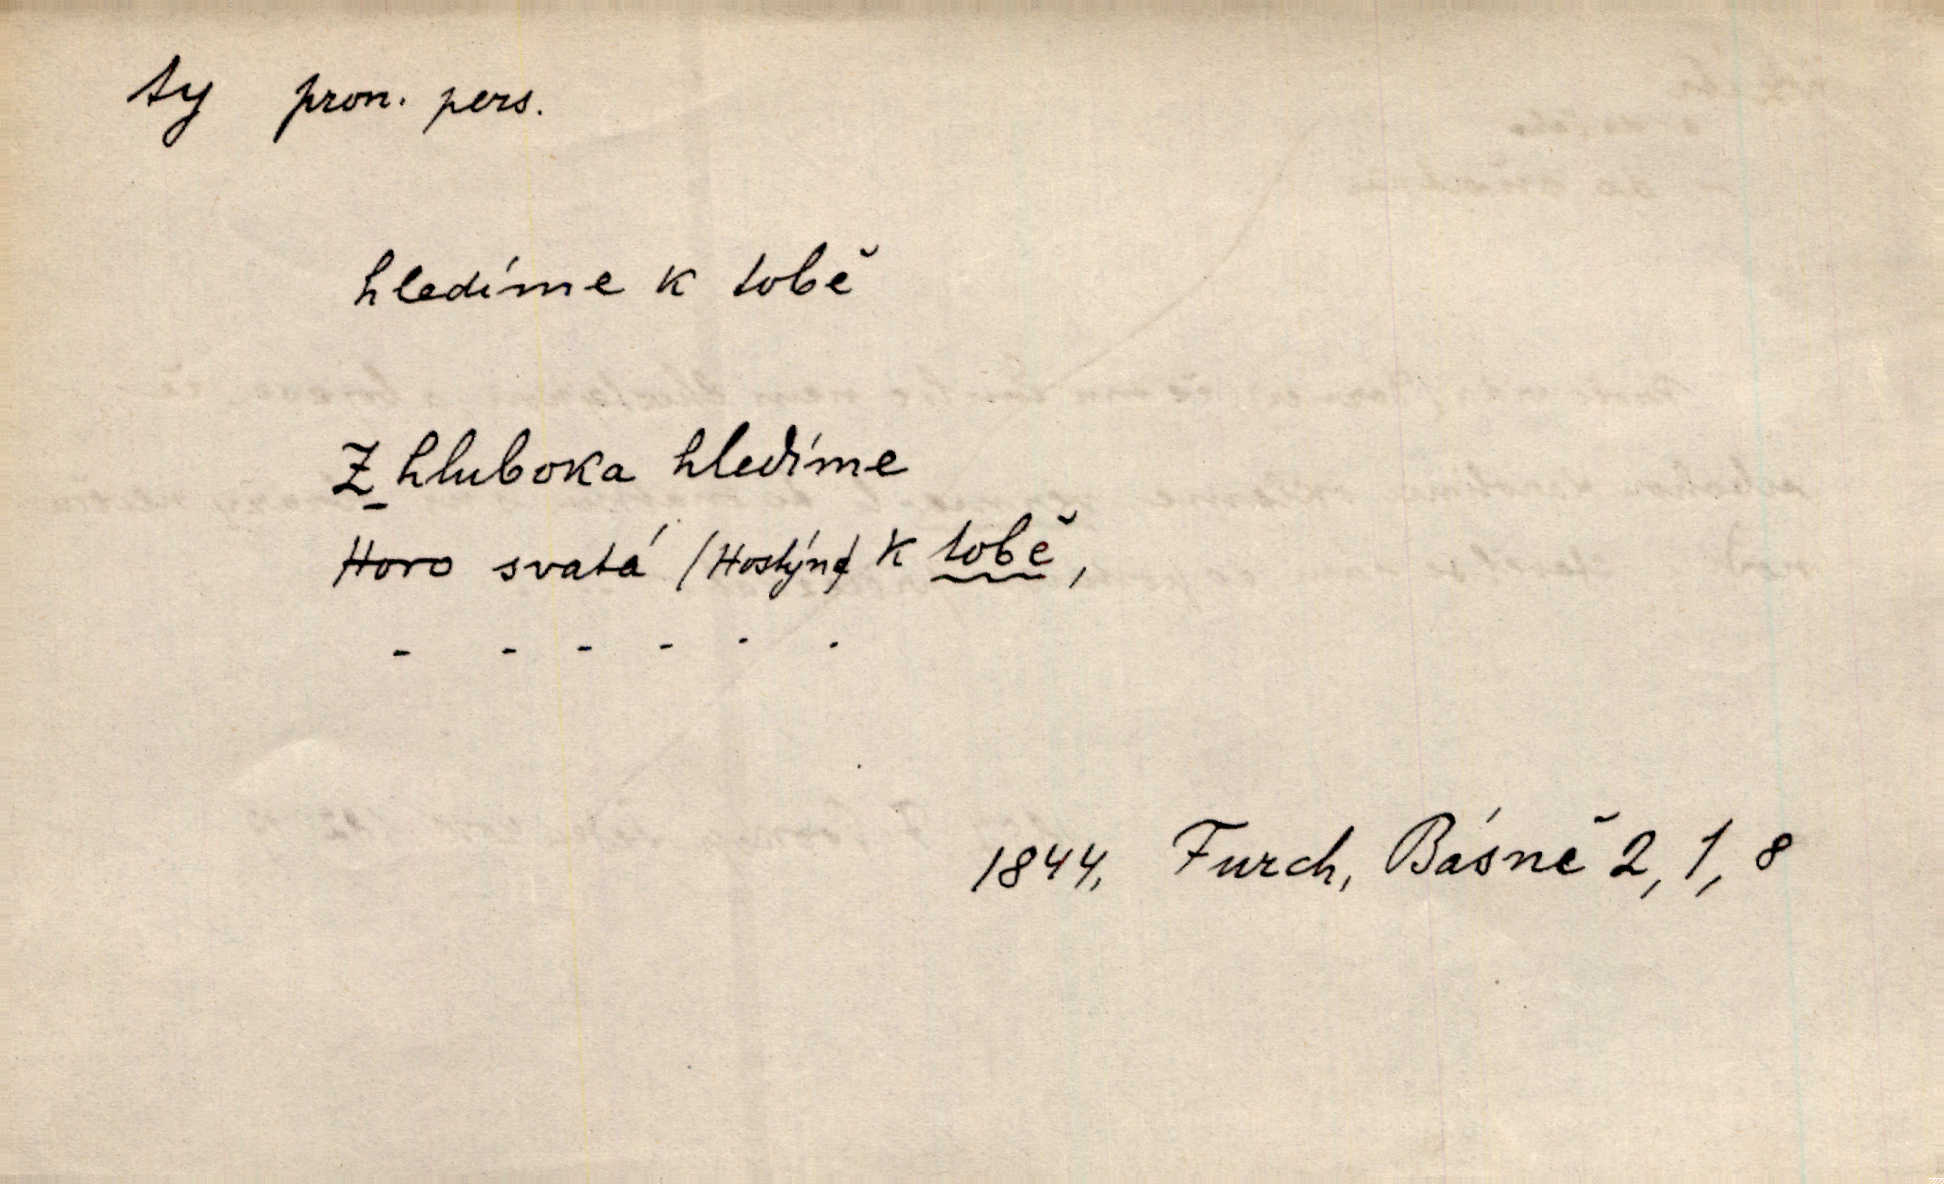 ty pron. pers.
hledíme k tobě
Z hluboka hledíme
Horo svatá /Hostýne/ k tobě,
- - - - - -
1844, Furch, Básně 2, 1, 8